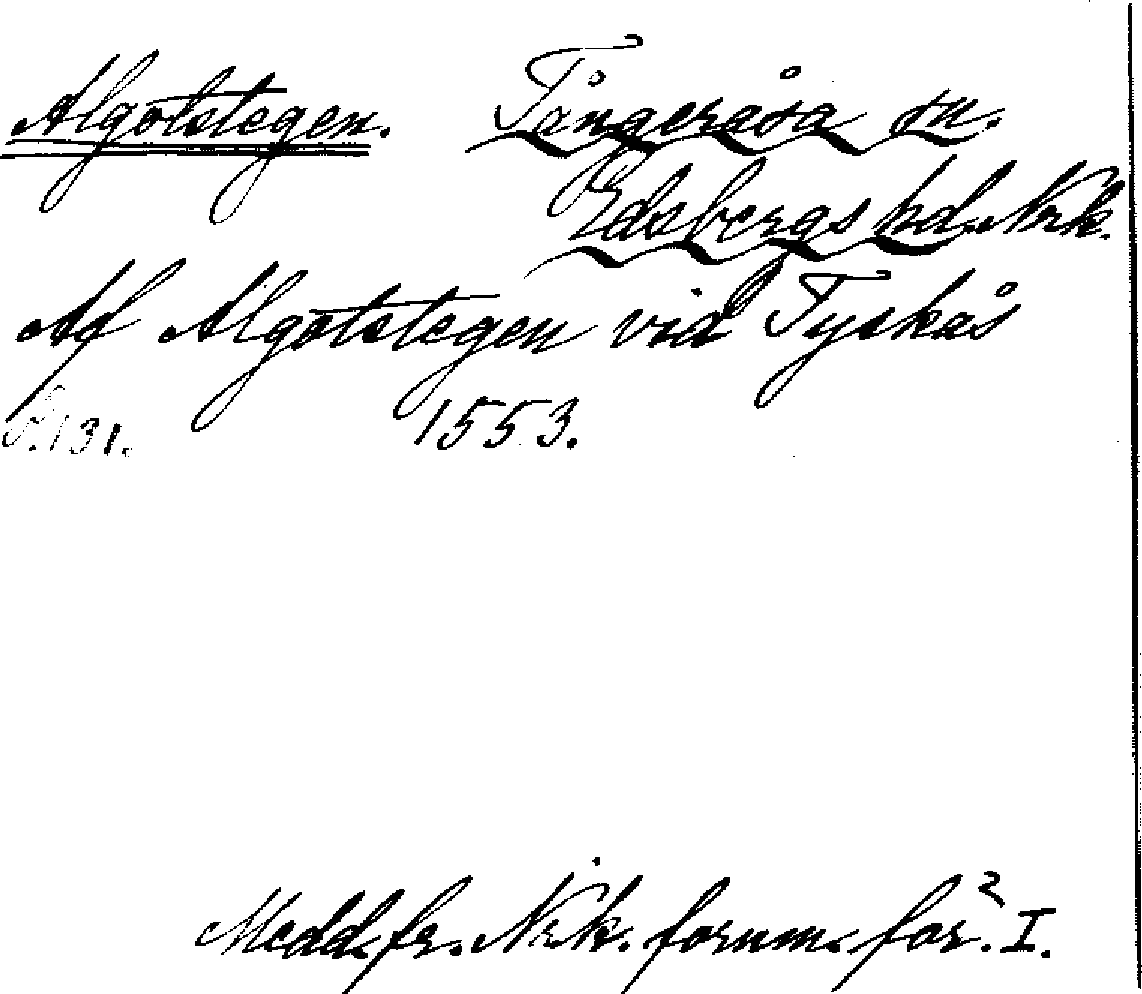 Algotstegen. Tångeråsa sn.
Edsbergs hd. Nrk.
Af Algotstegen vid Tyskås
S. 131. 1553.
Medd. fr. Nrk. fornm.för. I.